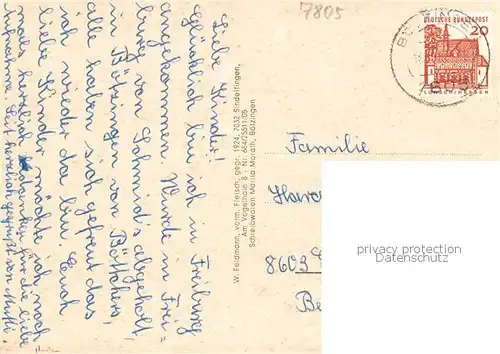 7805
DEUTSCHE BUNDESPOST
20
LORSCH/HESSEN
Liebe Kinder!
Glücklich bin ich in Freiburg
angekommen. Wurde in Frei-
burg von Schmid's abgeholt
in Bötzingen von Böttchers,
alle haben sich gefreut das
ich wieder da bin. Euch
liebe Kinder möchte ich noch
mals herzlich danken für die liebe
Aufnahme. Seit herzlich gegrüßt von Mutti.
W. Feldmann, vorm. Fleisch, gegr. 1924, 7032 Sindelfingen,
Am Vogelhain 8 - Nr. 664/25511:05
Schreibwaren Martha Morlach, Bötzingen
Familie
8603
privacy protection
Datenschutz